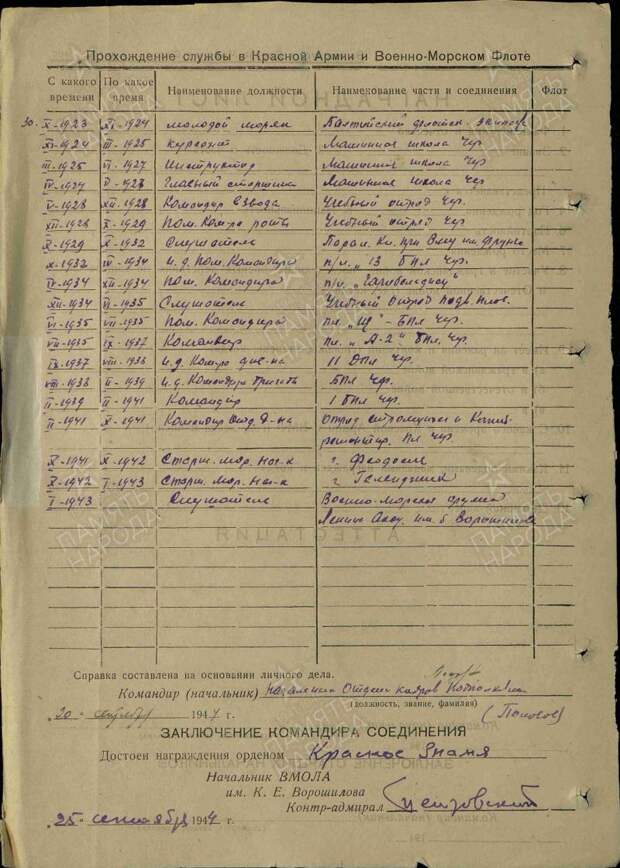 Прохождение службы в Красной Армии и Военно-Морском Флоте
С какого времени По какое время Наименование должности Наименование части и соединения Флот
30. X-1923 XI-1924 молодой моряк Балтийский флотск. экипаж
XI-1924 III-1925 курсант Машинная школа Чер.
III-1925 VI-1927 Инструктор Машинная школа Чер
IV-1927 V-1928 Главный старшина Машинная школа Чер
V-1928 XII-1928 Командир взвода Учебный отряд Чер.
XII-1928 X-1929 Пом. Ком-ра роты Учебный отряд Чер
X-1929 X-1932 Слушатель Парал. Кл. при Вму им Фрунзе
X-1932 IV-1934 и.д. пом. Командира п/л. "13 БПЛ Чер.
IV-1934 XII-1934 пом. Командира п/л. "Гарибальдиец"
XII-1934 VI-1935 Слушатель Учебный отряд подв. плав.
VI-1935 VII-1935 Пом. Командира пл. "Щ" - БПл Чер.
VII-1935 IX-1937 Командир пл. "А-2" БПл. Чер.
IX-1937 VIII-1938 и.д. Ком-ра див-на 11 ДПл Чер.
VIII-1938 II-1939 и.д. Командира бригады БПл Чер.
II-1939 II-1941 Командир 1 БПл Чер.
II-1941 X-1941 Командир Отд. Д-на Отряд строющихся и Капит.
ремонтир. пл Чер
X-1941 X-1942 Старш. Мор. Нач-к г. Феодосия
X-1942 I-1943 Старш. Мор. Нач-к г. Геленджик
I-1943 Слушатель Военно-Морская ордена
Ленина Акад. им. Ворошилова
Справка составлена на основании личного дела.
Командир (начальник) Начальник Отдела кадров
(должность, звание, фамилия)
„30" 1944 г. (Попов)
ЗАКЛЮЧЕНИЕ КОМАНДИРА СОЕДИНЕНИЯ
Достоен награждения орденом Красное Знамя
Начальник ВМОЛА
им. К. Е. Ворошилова
Контр-адмирал
„25" сентября 1944 г.
ПАМЯТЬ НАРОДА